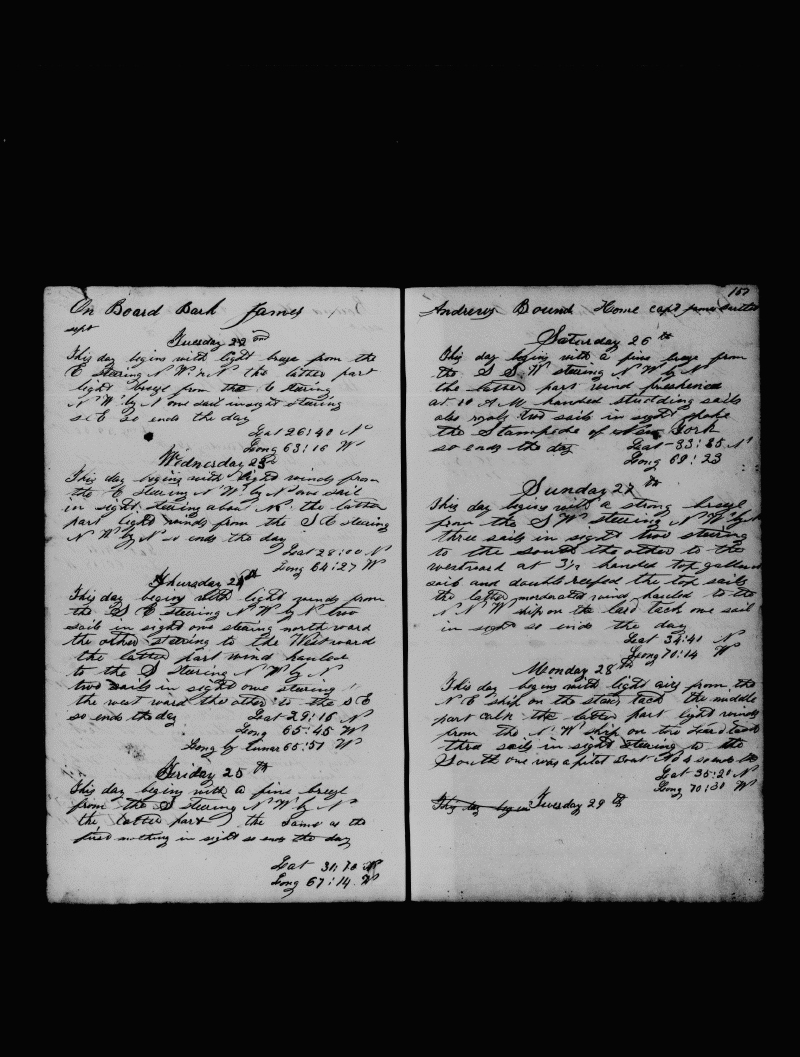 On Board Bark James
sept
Tuesday 22 nd
This day begins with light breze from the
E Stering N W. b. N the latter part
light breze from the E stering
N W. by N one sail in sight stering
S. E so ends the day
Lat 26:40 N
Long 63:16 W
Wednesday 23
This day begins with light winds from
the E Stering N W. by N one sail
in sight stering about N. the latter
part light winds from the S E stering
N W by N so ends the day
Lat 28:00 N
Long 64:27 W
Thursday 24 th
This day begins with light winds from
the S E stering N W by N two
sails in sight one stering north ward
the other stering to the Westward
the latter part wind hauled
to the S Stering N W by N
two sails in sight one stering
the west ward the other to the S E
so ends the day Lat 29:16 N
Long 65:45 W
Long by lunar 65:51 W
Friday 25 th
This day begins with a fine breze
from the S Stering N W by N
the latter part the Same as the
first nothing in sight so ends the day
Lat 31:10 N
Long 67:14 W
157
Andrews Bound Home capt James
Saturday 26 th
This day begins with a fine breze from
the S S. W stering N W by N
the latter part wind freshened
at 10 A M. handed studding sails
also royals two sails in sight spoke
the Stampede of New York
so ends the day Lat 33:35 N
Long 69:23
Sunday 27 th
This day begins with a strong breze
from the S W stering N W by N
three sails in sight two stering
to the south the other to the
westward at 3 1/2 handed top gallant
sail and double reefed the top sails
the latter moderated wind hauled to the
N N W ship on the lard tack one sail
in sight so ends the day
Lat 34:41 N
Long 70:14 W
Monday 28 th
This day begins with light airs from the
N E ship on the stard tack the middle
part calm the latter part light winds
from the N. W ship on the lard tack
three sails in sight stering to the
South one was a pilot boat No 4 so ends the
Lat 35:20 N
Long 70:30 W
This day begin Tuesday 29 th